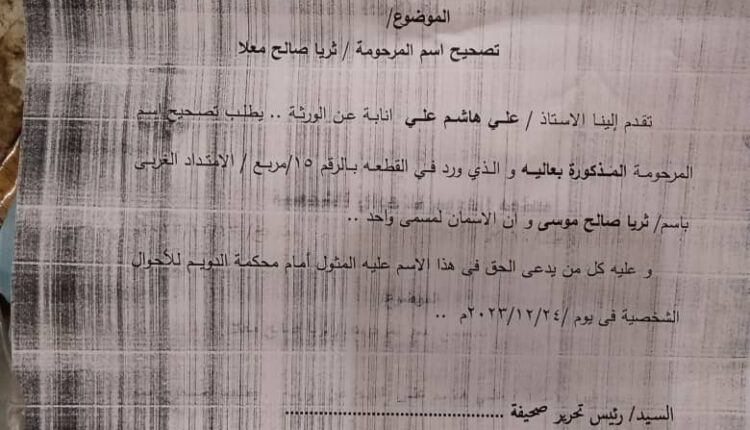 الموضوع/
تصحيح اسم المرحومة / ثريا صالح معلا
تقدم إلينا الاستاذ / علي هاشم علي انابة عن الورثة .. يطلب تصحيح اسم
المرحومة المذكورة بعاليه و الذي ورد في القطعه بالرقم ١٥/مربع / الامتداد الغربى
باسم/ ثريا صالح موسى و ان الاسمان لمسمى واحد ..
و عليه كل من يدعى الحق فى هذا الاسم عليه المثول أمام محكمة الدويم للأحوال
الشخصية فى يوم /٢٠٢٣/١٢/٢٤م ..
السيد/ رئيس تحرير صحيفة ........................................